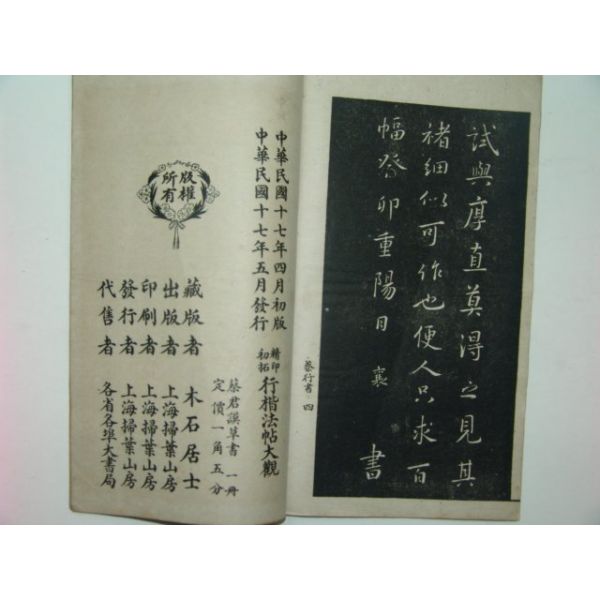 試與厚直莫得之見其
褚細似可作也便人只求百
幅癸卯重陽日 襄 書
蔡行書 四
精印初拓 行楷法帖大觀
蔡君謨草書 一冊
定價一角五分
中華民國十七年四月初版
中華民國十七年五月發行
版權所有
藏版者 木石居士
出版者 上海掃葉山房
印刷者 上海掃葉山房
發行者 上海掃葉山房
代售者 各省各埠大書局